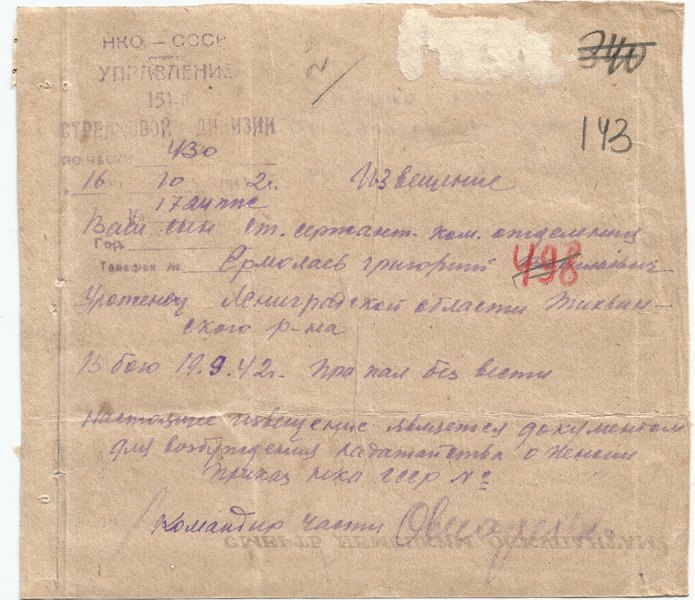 НКО — СССР
УПРАВЛЕНИЕ
151-й
СТРЕЛКОВОЙ ДИВИЗИИ
ПО ЧАСТИ 430
340
143
16 10 194 2г.
Извещение
№
Ваш сын ст. сержант. ком. отделения
Гор.
Телефон № Ермолаев Григорий
498
Уроженец Ленинградской области Тихвин-
ского р-на
В бою 19.9.42г. пропал без вести
Настоящее извещение является документом
для возбуждения хадатайства о пенсии
Приказ нко СССР №
Командир части
СМЕРТЬ НЕМЕЦКИМ ОККУПАНТАМ!